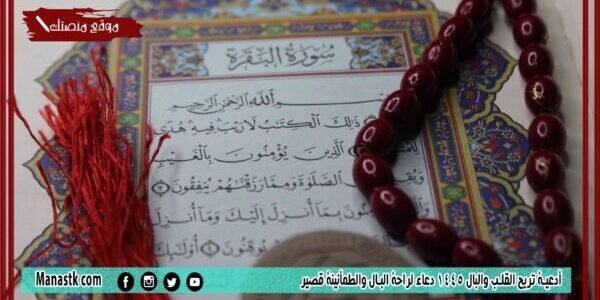 موقع منصتك
سورة البقرة
ـم الله الرحمن الرحيم
ذَٰلِكَ الْكِتَابُ لَا رَيْبَ فِيهِ هُدًى
الَّذِينَ يُؤْمِنُونَ بِالْغَيْبِ
الصَّلَوٰةَ وَمِمَّا رَزَقْنَٰهُمْ يُنفِقُونَ ٣
بِمَا أُنزِلَ إِلَيْكَ وَمَا أُنزِلَ
يُوقِنُونَ ٤ أُوْلَٰٓئِكَ
أدعية تريح القلب والبال ١٤٤٥ دعاء لراحة البال والطمأنينة قصير
Manastk com